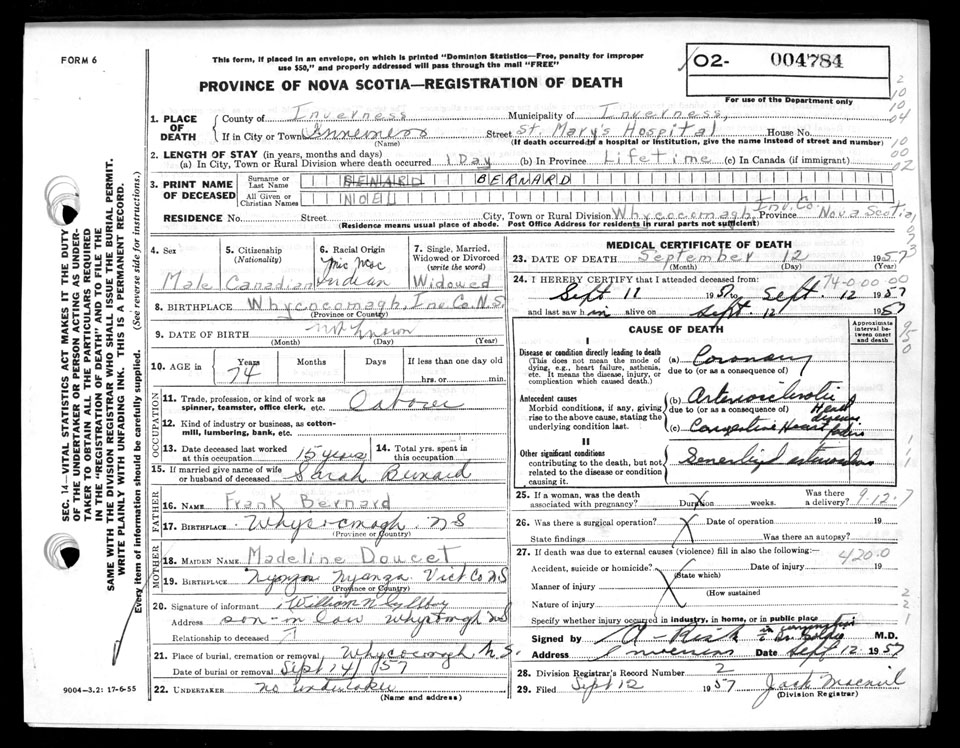 FORM 6
This form, if placed in an envelope, on which is printed "Dominion Statistics—Free, penalty for improper
use $50," and properly addressed will pass through the mail "FREE"
PROVINCE OF NOVA SCOTIA—REGISTRATION OF DEATH
02- 004784
For use of the Department only
SEC. 14—VITAL STATISTICS ACT MAKES IT THE DUTY
OF THE UNDERTAKER OR PERSON ACTING AS UNDER-
TAKER TO OBTAIN ALL THE PARTICULARS REQUIRED
IN THE "REGISTRATION OF DEATH" AND TO FILE THE
SAME WITH THE DIVISION REGISTRAR WHO SHALL ISSUE THE BURIAL PERMIT.
WRITE PLAINLY WITH UNFADING INK. THIS IS A PERMANENT RECORD.
Every item of information should be carefully supplied. (See reverse side for instructions.)
1. PLACE OF DEATH County of Inverness Municipality of Inverness,
If in City or Town Inverness (Name) Street St. Mary's Hospital House No.
(If death occurred in a hospital or institution, give the name instead of street and number)
2. LENGTH OF STAY (in years, months and days)
(a) In City, Town or Rural Division where death occurred 1 Day (b) In Province Lifetime (c) In Canada (if immigrant)
3. PRINT NAME OF DECEASED Surname or Last Name BENARD BERNARD
All Given or Christian Names NOEL
RESIDENCE No. Street City, Town or Rural Division Whycocomagh Inv. Co. Province Nova Scotia
(Residence means usual place of abode. Post Office Address for residents in rural parts not sufficient)
4. Sex Male
5. Citizenship (Nationality) Canadian
6. Racial Origin Mic Mac Indian
7. Single, Married, Widowed or Divorced (write the word) Widowed
8. BIRTHPLACE Whycocomagh, Inv. Co. N.S.
(Province or Country)
9. DATE OF BIRTH not known
(Month) (Day) (Year)
10. AGE in Years 74 Months Days If less than one day old hrs. or min.
OCCUPATION
11. Trade, profession, or kind of work as spinner, teamster, office clerk, etc. Laborer
12. Kind of industry or business, as cotton-mill, lumbering, bank, etc.
13. Date deceased last worked at this occupation 15 years
14. Total yrs. spent in this occupation
15. If married give name of wife or husband of deceased Sarah Bernard
FATHER
16. NAME Frank Bernard
17. BIRTHPLACE NS
(Province or Country)
MOTHER
18. MAIDEN NAME Madeline Doucet
19. BIRTHPLACE Nyanza Nyanza Vict Co NS
(Province or Country)
20. Signature of informant William N
Address son-in law NS
Relationship to deceased
21. Place of burial, cremation or removal Whycocomagh N.S.
Date of burial or removal Sept 14/57
22. UNDERTAKER no undertaker
(Name and address)
9004—3.2: 17-6-55
MEDICAL CERTIFICATE OF DEATH
23. DATE OF DEATH September 12 1957
(Month) (Day) (Year)
24. I HEREBY CERTIFY that I attended deceased from: 74-0 00 00
Sept 11 1957 to Sept. 12 1957
and last saw him alive on Sept. 12 1957
CAUSE OF DEATH
Approximate interval between onset and death
I
Disease or condition directly leading to death
(This does not mean the mode of dying, e.g., heart failure, asthenia, etc. It means the disease, injury, or complication which caused death.)
(a) Coronary
due to (or as a consequence of)
Antecedent causes
Morbid conditions, if any, giving rise to the above cause, stating the underlying condition last.
(b) Arteriosclerotic
due to (or as a consequence of) Heart disease
(c) Congestive Heart failure
II
Other significant conditions
contributing to the death, but not related to the disease or condition causing it.
25. If a woman, was the death associated with pregnancy? Duration weeks. Was there a delivery? 9.12.7
26. Was there a surgical operation? Date of operation 19
State findings Was there an autopsy?
27. If death was due to external causes (violence) fill in also the following:— 420.0
Accident, suicide or homicide? Date of injury 19
(State which)
Manner of injury
(How sustained
Nature of injury
Specify whether injury occurred in industry, in home, or in public place
Signed by M.D.
Address Inverness Date Sept 12 1957
28. Division Registrar's Record Number 2
29. Filed Sept 12 1957 Jack
(Division Registrar)